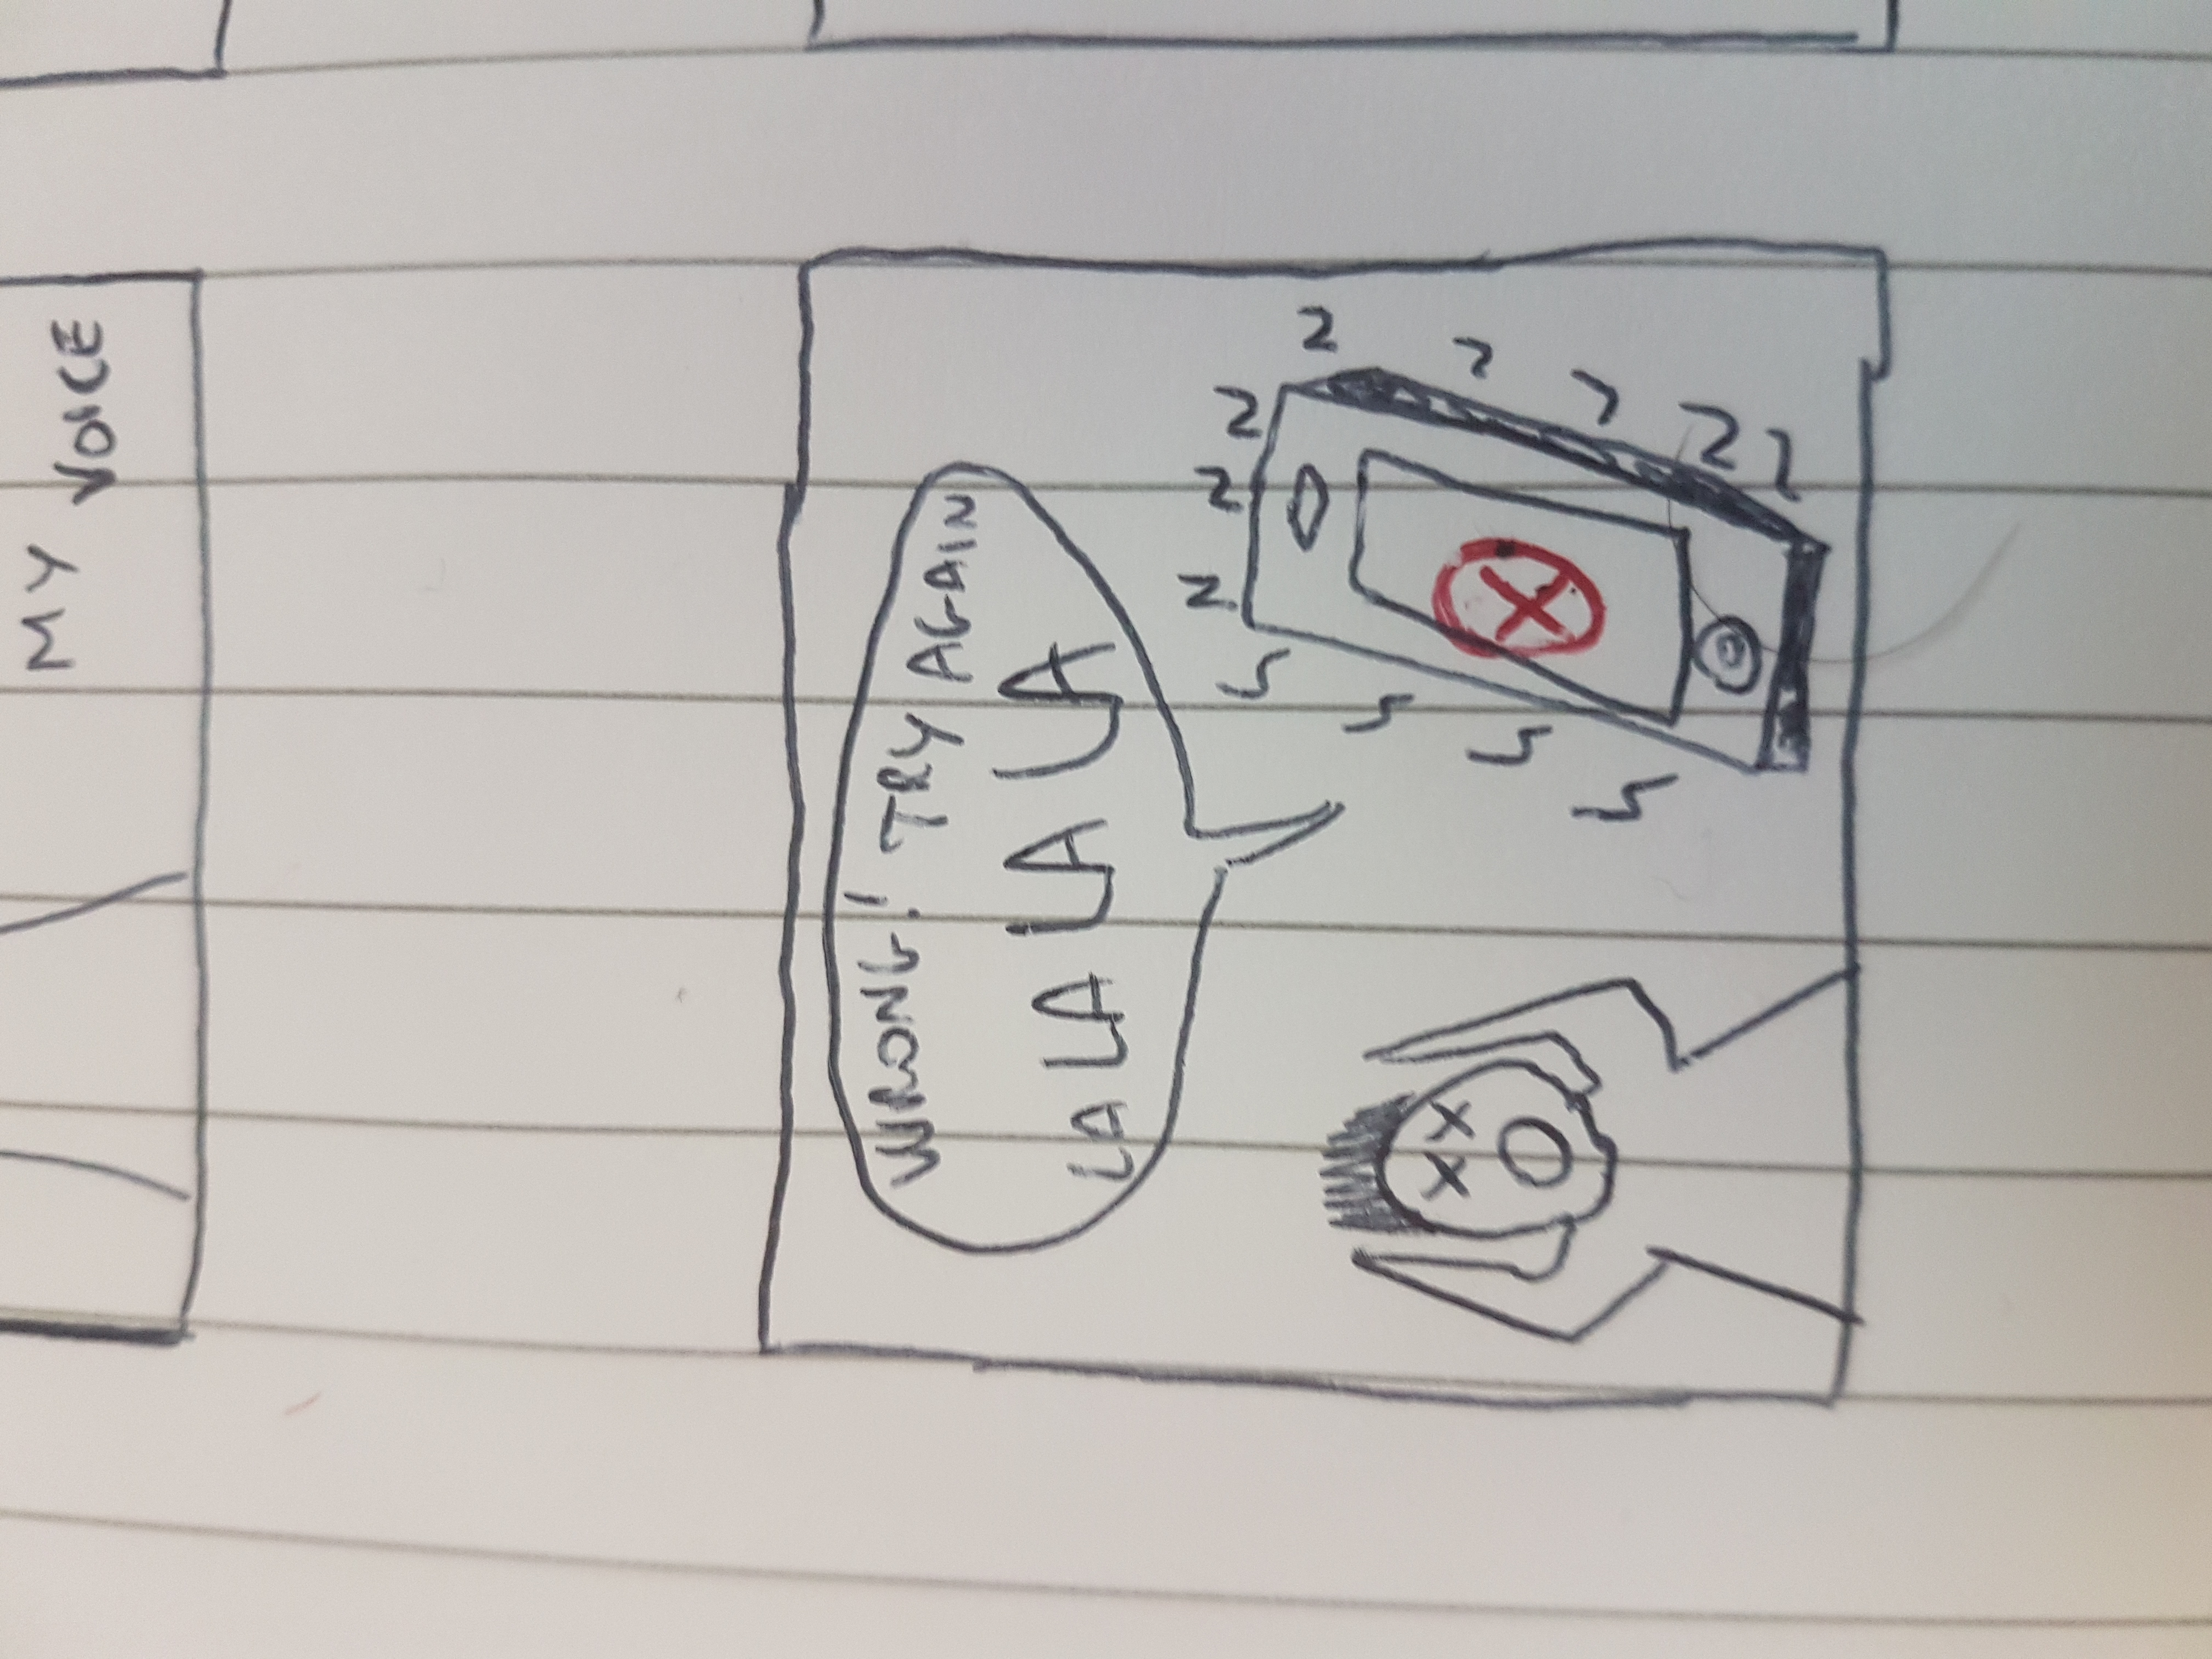 MY VOICE
WRONG! TRY AGAIN
LA LA LA LA